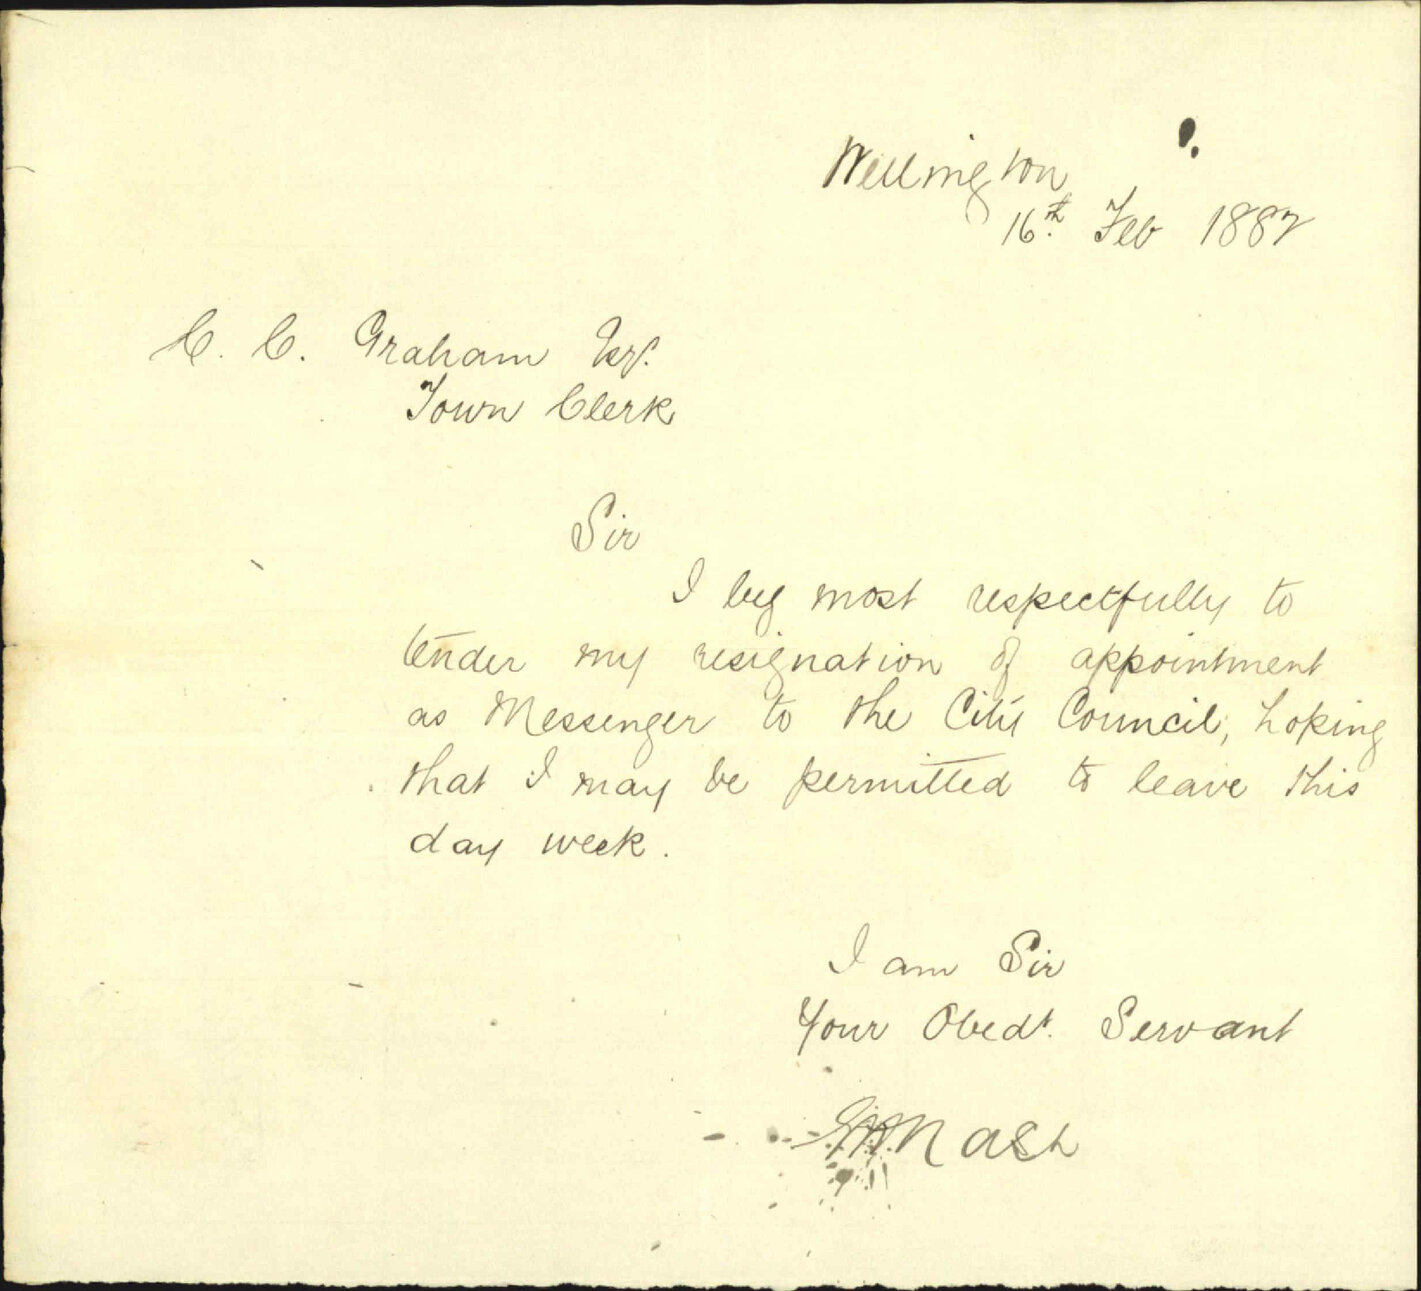 Wellington
16th. Feb 1882
C. C. Graham Esq.
Town Clerk
Sir
I beg most respectfully to
tender my resignation of appointment
as Messenger to the City Council, hoping
that I may be permitted to leave this
day week.
I am Sir
Your Obedt. Servant
Nash